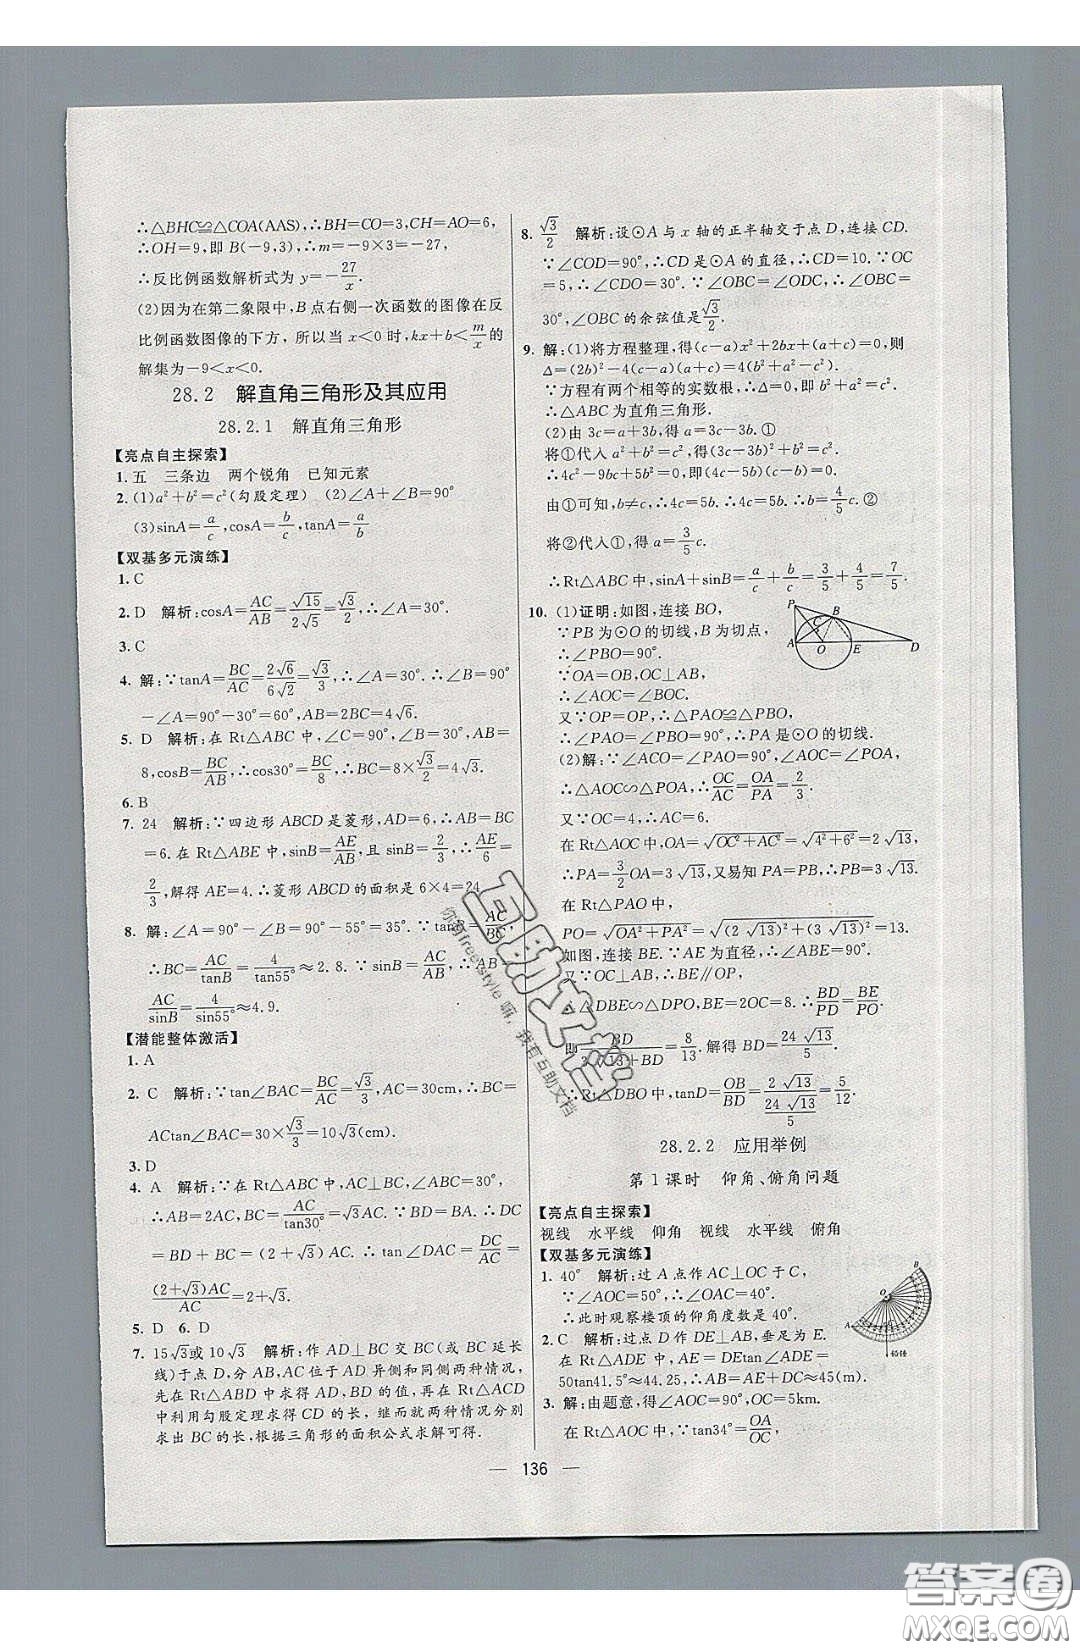 ∴△BHC≌△COA(AAS),∴BH=CO=3,CH=AO=6,
∴OH=9,即 B(-9,3),∴m=-9×3=-27,
∴反比例函数解析式为 y=-27/x.
(2)因为在第二象限中,B 点右侧一次函数的图像在反
比例函数图像的下方, 所以当 x<0 时,kx+b<m/x的
解集为-9<x<0.
28.2 解直角三角形及其应用
28.2.1 解直角三角形
【亮点自主探索】
1. 五 三条边 两个锐角 已知元素
2. (1)a²+b²=c²(勾股定理) (2)∠A+∠B=90°
(3)sinA=a/c,cosA=b/c,tanA=a/b
【双基多元演练】
1. C
2. D 解析:cosA=AC/AB=√15/2√5=√3/2,∴∠A=30°.
3. C
4. 解:∵tanA=BC/AC=2√6/6√2=√3/3,∴∠A=30°.∴∠B=90°
-∠A=90°-30°=60°,AB=2BC=4√6.
5. D 解析:在 Rt△ABC 中,∠C=90°,∠B=30°,AB=
8,cosB=BC/AB,∴cos30°=BC/8,∴BC=8×√3/2=4√3.
6. B
7. 24 解析:∵四边形 ABCD 是菱形,AD=6,∴AB=BC
=6.在 Rt△ABE 中,sinB=AE/AB,且 sinB=2/3,∴AE/6=
2/3,解得 AE=4.∴菱形 ABCD 的面积是 6×4=24
8. 解:∠A=90°-∠B=90°-55°=35°.∵tanB=AC/BC,
∴BC=AC/tanB=4/tan55°≈2.8.∵sinB=AC/AB,∴AB=
AC/sinB=4/sin55°≈4.9.
【潜能整体激活】
1. A
2. C 解析:∵tan∠BAC=BC/AC=√3/3,AC=30cm,∴BC=
ACtan∠BAC=30×√3/3=10√3(cm).
3. D
4. A 解析:∵在 Rt△ABC 中,AC⊥BC,∠ABC=30°,
∴AB=2AC,BC=AC/tan30°=√3AC.∵BD=BA.∴DC
=BD+BC=(2+√3)AC,∴tan∠DAC=DC/AC=
(2+√3)AC/AC=2+√3.
5. D 6. D
7. 15√3或10√3 解析:作 AD⊥BC 交 BC(或 BC 延长
线)于点 D,分 AB,AC 位于 AD 异侧和同侧两种情况,
先在 Rt△ABD 中求得 AD,BD 的值,再在 Rt△ACD
中利用勾股定理求得 CD 的长, 继而就两种情况分别
求出 BC 的长,根据三角形的面积公式求解可得.
8. √3/2 解析:设⊙A 与 x 轴的正半轴交于点 D,连接 CD.
∵∠COD=90°,∴CD 是⊙A 的直径,∴CD=10.∵OC
=5,∴∠CDO=30°.∵∠OBC=∠ODC,∴∠OBC=
30°,∠OBC 的余弦值是√3/2.
9. 解:(1)将方程整理,得(c-a)x²+2bx+(a+c)=0,则
Δ=(2b)²-4(c-a)(a+c)=4(b²+a²-c²).
∵方程有两个相等的实数根,∴Δ=0,即b²+a²=c².
∴△ABC 为直角三角形.
(2)由 3c=a+3b,得 a=3c-3b.①
将①代入 a²+b²=c²,得(3c-3b)²+b²=c².
∴4c²-9bc+5b²=0,即(4c-5b)(c-b)=0.
由①可知,b≠c,∴4c=5b.∴4c=5b.∴b=4/5c. ②
将②代入①,得 a=3/5c.
∴Rt△ABC 中,sinA+sinB=a/c+b/c=3/5+4/5=7/5.
10. (1)证明:如图,连接 BO,
∵PB 为⊙O 的切线,B 为切点,
∴∠PBO=90°.
∵OA=OB,OC⊥AB,
∴∠AOC=∠BOC.
又∵OP=OP,∴△PAO≌△PBO,
∴∠PAO=∠PBO=90°,∴PA 是⊙O 的切线.
(2)解:∵∠ACO=∠PAO=90°,∠AOC=∠POA,
∴△AOC∽△POA,∴OC/AC=OA/PA=2/3.
又∵OC=4,∴AC=6.
在 Rt△AOC 中,OA=√OC²+AC²=√4²+6²=2√13,
∴PA=3/2OA=3√13,又易知 PA=PB,∴PB=3√13.
在 Rt△PAO 中,
PO=√OA²+PA²=√(2√13)²+(3√13)²=13.
如图,连接 BE.∵AE 为直径,∴∠ABE=90°.
又∵OC⊥AB,∴BE∥OP,
∴△DBE∽△DPO,BE=2OC=8.∴BD/PD=BE/PO,
即BD/3√13+BD=8/13.解得 BD=24√13/5.
∴Rt△DBO 中,tanD=OB/BD=2√13/24√13/5=5/12.
P
B
C
A
O
E
D
28.2.2 应用举例
第 1 课时 仰角、俯角问题
【亮点自主探索】
视线 水平线 仰角 视线 水平线 俯角
【双基多元演练】
1. 40° 解析:过 A 点作 AC⊥OC 于 C,
∵∠AOC=50°,∴∠OAC=40°.
∴此时观察楼顶的仰角度数是 40°.
2. C 解析:过点 D 作 DE⊥AB,垂足为 E.
在 Rt△ADE 中,AE=DEtan∠ADE=
50tan41.5°≈44.25,∴AB=AE+DC≈45(m).
3. 解:由题意,得∠AOC=90°,OC=5km.
在 Rt△AOC 中,∵tan34°=OA/OC,
B
O
A
铅锤
— 136 —
互助文档
你的freestyle 嘛，我有互助文档
答案圈
MXQE.COM